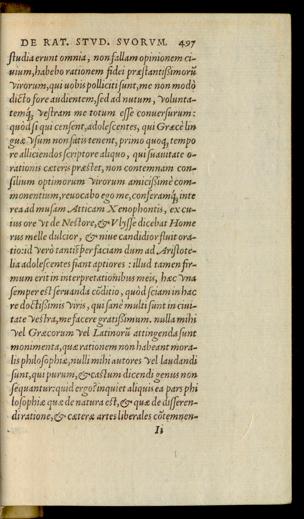 DE RAT. STVD. SVORVM. 497
studia erunt omnia, non fallam opinionem ci-
uium, habebo rationem fidei præstantißimorũ
virorum, qui uobis polliciti sunt, me non modò
dicto fore audientem, sed ad nutum, volunta-
temq́; vestram me totum esse conuersurum:
quòd si qui censent, adolescentes, qui Græcè lin
guæ vsum non satis tenent, primo quoq; tempo
re alliciendos scriptore aliquo, qui suauitate o-
rationis cæteris præstet, non contemnam con-
silium optimorum virorum amicißimè com-
monentium, reuocabo ego me, conferamq́; inte
rea ad musam Atticam Xenophontis, ex cu-
ius ore vt de Nestore, & Vlysse dicebat Home
rus melle dulcior, & niue candidior fluit ora-
tio: id verò tantisper faciam dum ad Aristote-
lia adolescentes fiant aptiores: illud tamen fir-
mum erit in interpretationibus meis, hæc vna
semper est seruanda cõditio, quòd sciam in hac
re doctißimis viris, qui sanè multi sunt in ciui-
tate vestra, me facere gratißimum. nulla mihi
vel Græcorum vel Latinorũ attingenda sunt
monimenta, quæ rationem non habeant mora-
lis philosophiæ, nulli mihi autores vel laudandi
sunt, qui purum, & castum dicendi genus non
sequantur: quid ergo? inquiet aliquis ea pars phi
losophiæ quæ de natura est, & quæ de disseren-
di ratione, & cæteræ artes liberales cõtemnen-
Ii